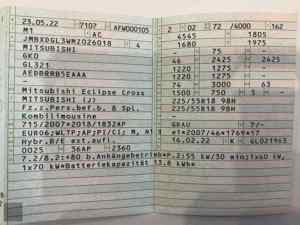 23.05.22 7107 AFW000105
M1 AC
JMBXDGL3WMZ026018 4
MITSUBISHI
GK0
GL321
AEDBRRB5EAAA
-
Mitsubishi Eclipse Cross
MITSUBISHI (J)
Fz.z.Pers.bef.b. 8 Spl.
Kombilimousine
715/2007*2018/1832AP
EURO6;WLTP;AP;PI/CI; M, N1
Hybr.B/E ext.aufl.
0025 36AP 2360
2 02 72 /4000 /162
4545 1805
1680 1975
- 75 - -
46 2425 2425
1220 1275 -
1220 1275 -
74 3000 63
1500 750 5 -
225/55R18 98H
225/55R18 98H
-
GRAU 7/-
e1*2007/46*1769*17
16.02.22 K GL021963
7.2/8.2:+80 b.Anhängebetrieb*P.2:55 kW/30 min;1x60 kW,
1x70 kW*Batteriekapazität 13,8 kWh*